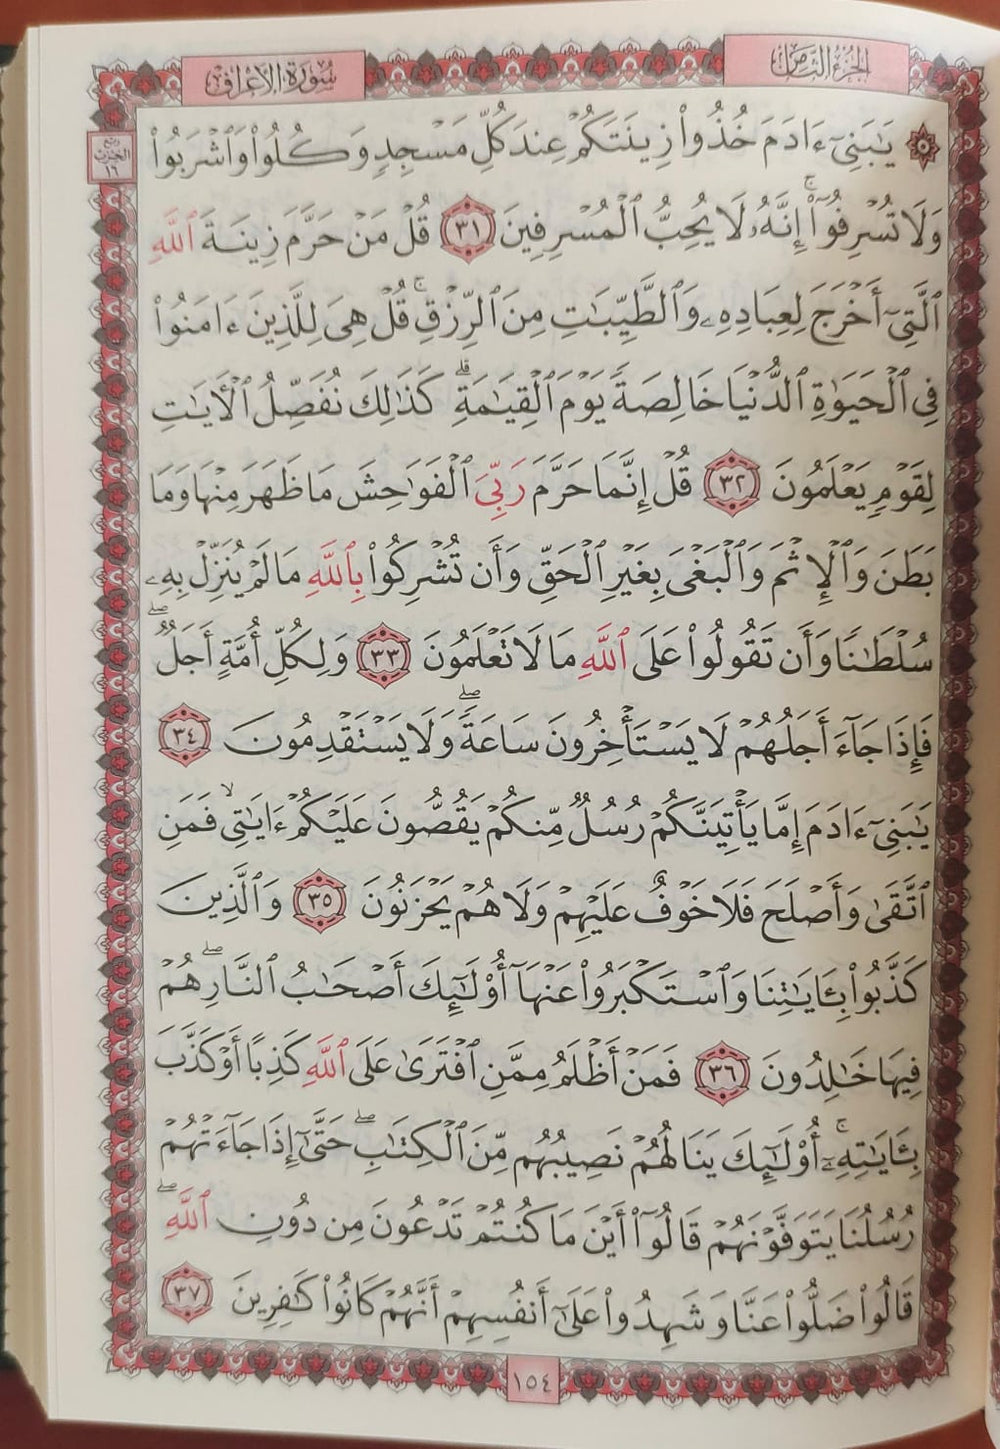 الجزء الثامن
سورة الأعراف
ربع
الحزب
١٦
۞ يَٰبَنِيٓ ءَادَمَ خُذُواْ زِينَتَكُمۡ عِندَ كُلِّ مَسۡجِدٖ وَكُلُواْ وَٱشۡرَبُواْ
وَلَا تُسۡرِفُوٓاْۚ إِنَّهُۥ لَا يُحِبُّ ٱلۡمُسۡرِفِينَ ٣١ قُلۡ مَنۡ حَرَّمَ زِينَةَ ٱللَّهِ
ٱلَّتِيٓ أَخۡرَجَ لِعِبَادِهِۦ وَٱلطَّيِّبَٰتِ مِنَ ٱلرِّزۡقِۚ قُلۡ هِيَ لِلَّذِينَ ءَامَنُواْ
فِي ٱلۡحَيَوٰةِ ٱلدُّنۡيَا خَالِصَةٗ يَوۡمَ ٱلۡقِيَٰمَةِۗ كَذَٰلِكَ نُفَصِّلُ ٱلۡأٓيَٰتِ
لِقَوۡمٖ يَعۡلَمُونَ ٣٢ قُلۡ إِنَّمَا حَرَّمَ رَبِّيَ ٱلۡفَوَٰحِشَ مَا ظَهَرَ مِنۡهَا وَمَا
بَطَنَ وَٱلۡإِثۡمَ وَٱلۡبَغۡيَ بِغَيۡرِ ٱلۡحَقِّ وَأَن تُشۡرِكُواْ بِٱللَّهِ مَا لَمۡ يُنَزِّلۡ بِهِۦ
سُلۡطَٰنٗا وَأَن تَقُولُواْ عَلَى ٱللَّهِ مَا لَا تَعۡلَمُونَ ٣٣ وَلِكُلِّ أُمَّةٍ أَجَلٞۖ
فَإِذَا جَآءَ أَجَلُهُمۡ لَا يَسۡتَأۡخِرُونَ سَاعَةٗۖ وَلَا يَسۡتَقۡدِمُونَ ٣٤
يَٰبَنِيٓ ءَادَمَ إِمَّا يَأۡتِيَنَّكُمۡ رُسُلٞ مِّنكُمۡ يَقُصُّونَ عَلَيۡكُمۡ ءَايَٰتِي ۙ فَمَنِ
ٱتَّقَىٰ وَأَصۡلَحَ فَلَا خَوۡفٌ عَلَيۡهِمۡ وَلَا هُمۡ يَحۡزَنُونَ ٣٥ وَٱلَّذِينَ
كَذَّبُواْ بِـَٔايَٰتِنَا وَٱسۡتَكۡبَرُواْ عَنۡهَآ أُوْلَٰٓئِكَ أَصۡحَٰبُ ٱلنَّارِۖ هُمۡ
فِيهَا خَٰلِدُونَ ٣٦ فَمَنۡ أَظۡلَمُ مِمَّنِ ٱفۡتَرَىٰ عَلَى ٱللَّهِ كَذِبًا أَوۡ كَذَّبَ
بِـَٔايَٰتِهِۦٓۚ أُوْلَٰٓئِكَ يَنَالُهُمۡ نَصِيبُهُم مِّنَ ٱلۡكِتَٰبِۖ حَتَّىٰٓ إِذَا جَآءَتۡهُمۡ
رُسُلُنَا يَتَوَفَّوۡنَهُمۡ قَالُوٓاْ أَيۡنَ مَا كُنتُمۡ تَدۡعُونَ مِن دُونِ ٱللَّهِۖ
قَالُواْ ضَلُّواْ عَنَّا وَشَهِدُواْ عَلَىٰٓ أَنفُسِهِمۡ أَنَّهُمۡ كَانُواْ كَٰفِرِينَ ٣٧
١٥٤